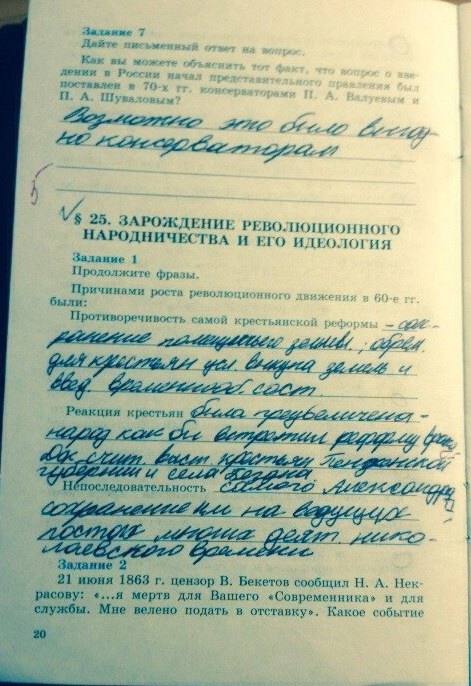 Задание 7
Дайте письменный ответ на вопрос.
Как вы можете объяснить тот факт, что вопрос о вве-
дении в России начал представительного правления был
поставлен в 70-х гг. консерваторами П. А. Валуевым и
П. А. Шуваловым?
Возможно это было выгод-
но консерваторам
5
√ § 25. ЗАРОЖДЕНИЕ РЕВОЛЮЦИОННОГО
НАРОДНИЧЕСТВА И ЕГО ИДЕОЛОГИЯ
Задание 1
Продолжите фразы.
Причинами роста революционного движения в 60-е гг.
были:
Противоречивость самой крестьянской реформы – сох-
ранение помещичьего землевл.; обрем.
для крестьян усл. выкупа земель и
введ. временнооб. сост.
Реакция крестьян была преувеличена-
народ как бы встретил реформу
счит. восст. крестьян Пензенской
губернии и села Бездна
Непоследовательность самого Александра II,
сохранение им на ведущих
постах многих деят. нико-
лаевского времени
Задание 2
21 июня 1863 г. цензор В. Бекетов сообщил Н. А. Нек-
расову: «...я мертв для Вашего «Современника» и для
службы. Мне велено подать в отставку». Какое событие
20